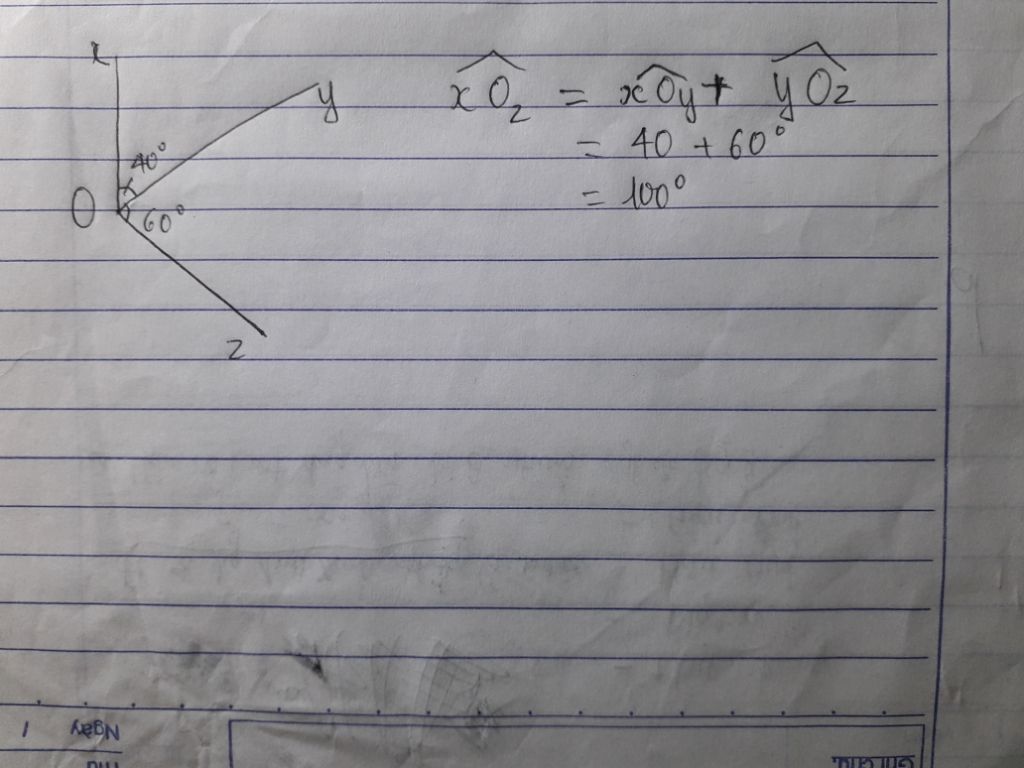 x
y
40°
O
60°
z
xOz = xOy + yOz
= 40 + 60°
= 100°
Ngày